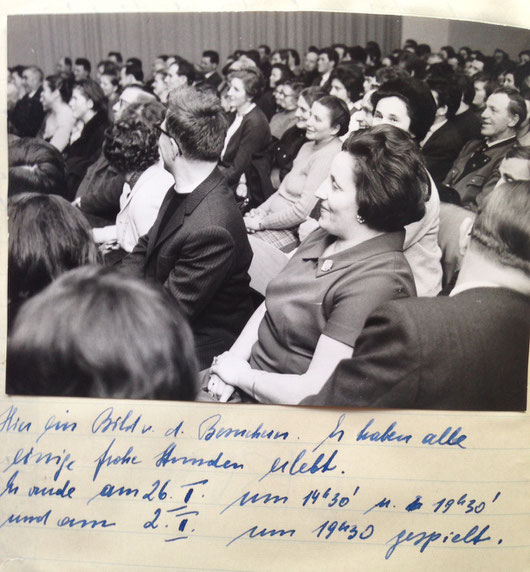 Hier ein Bild v. d. Besuchern. Es haben alle
einige frohe Stunden erlebt.
Es wurde am 26. I. um 14h30' u. 19h30'
und am 2. II. um 19h30 gespielt.